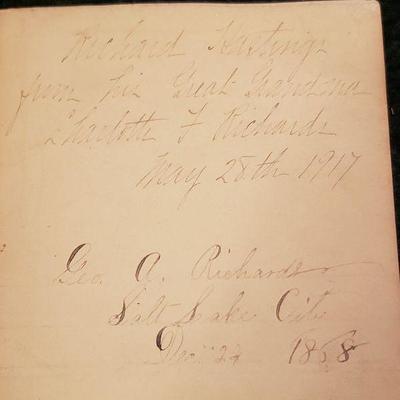 Richard Hastings
from his Great Grandma
Charlotte F Richards
May 28th 1917
Geo. A. Richards
Salt Lake City
Dec 24 1868